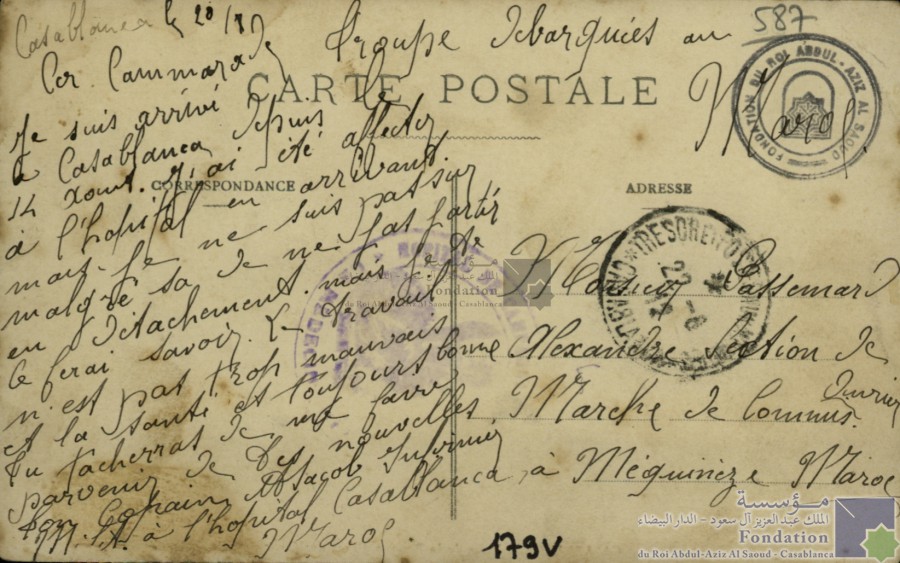 587
Casablanca le 20/8
Groupe Débarqués au
Maroc
Cer Cammarade
CARTE POSTALE
Je suis arrivé
à Casablanca depuis le
14 Aout. J'ai été affecter
CORRESPONDANCE
ADRESSE
à l'hopital en arrivant.
mais je ne suis pas sur
malgré sa de ne pas partir
en détachement. mais je te
le ferai savoir. Le travail
n'est pas trop mauvais
et la santé est toujours bonne
Tu tacherras de me faire
parvenir de tes nouvelles
Ton Copain Jacob infirmier
à l'hopital Casablanca
Maroc
Monsieur Passemard
Alexandre Section de
Marche de Commis. Ouvrier
à Méquineze Maroc
179V
FONDATION DU ROI ABDUL-AZIZ AL SAOUD CASABLANCA
TRESOR ET POSTES
Fondation
du Roi Abdul-Aziz Al Saoud - Casablanca
مؤسسة
الملك عبد العزيز آل سعود - الدار البيضاء
Fondation
du Roi Abdul-Aziz Al Saoud - Casablanca